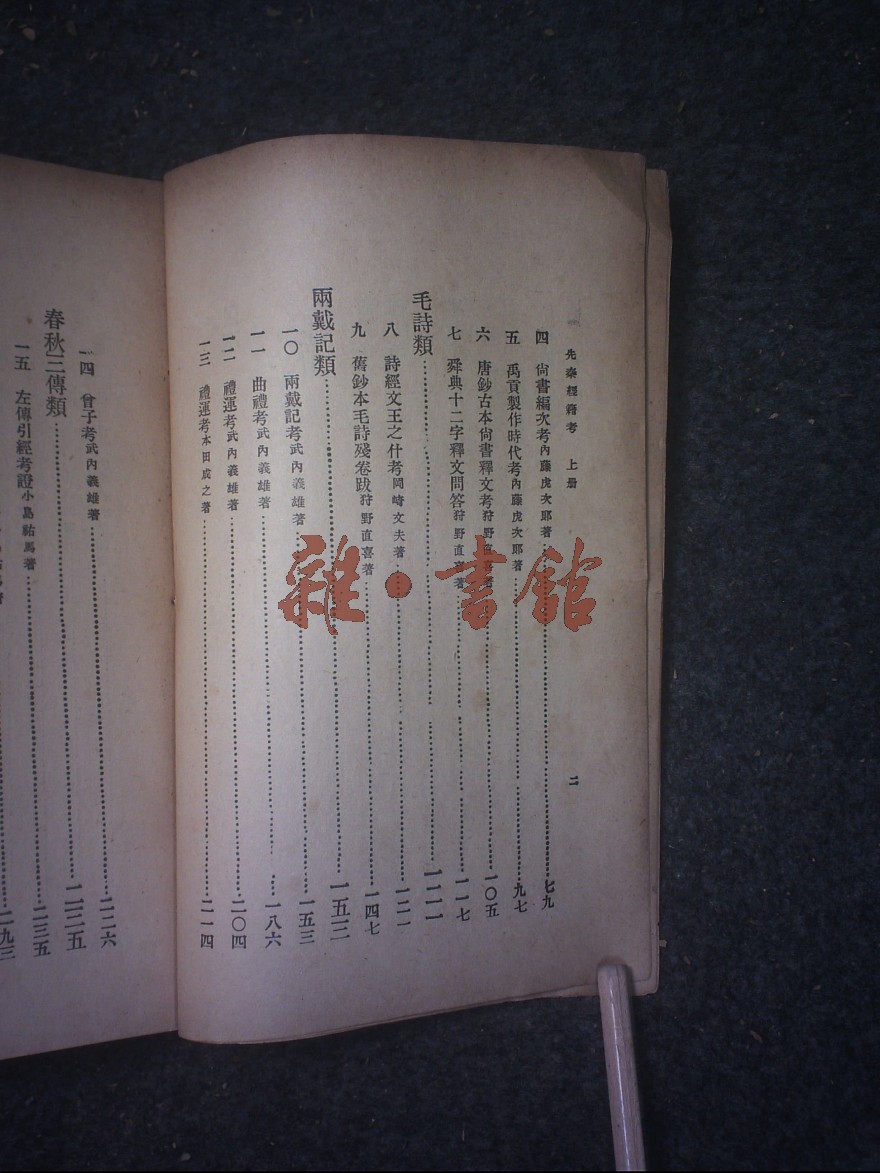 先秦經籍考　上册
二
四　尙書編次考內藤虎次郎著………七九
五　禹貢製作時代考內藤虎次郎著………九七
六　唐鈔古本尙書釋文考狩野直喜著………一〇五
七　舜典十二字釋文問答狩野直喜著………一一七
毛詩類………一二一
八　詩經文王之什考岡崎文夫著………一二一
九　舊鈔本毛詩殘卷跋狩野直喜著………一四七
兩戴記類………一五三
一〇　兩戴記考武內義雄著………一五三
一一　曲禮考武內義雄著………一八六
一二　禮運考武內義雄著………二〇四
一三　禮運考本田成之著………二一四
一四　曾子考武內義雄著………二二六
春秋三傳類………二三五
一五　左傳引經考證小島祐馬著………二三五
著………二九三
雜·書館